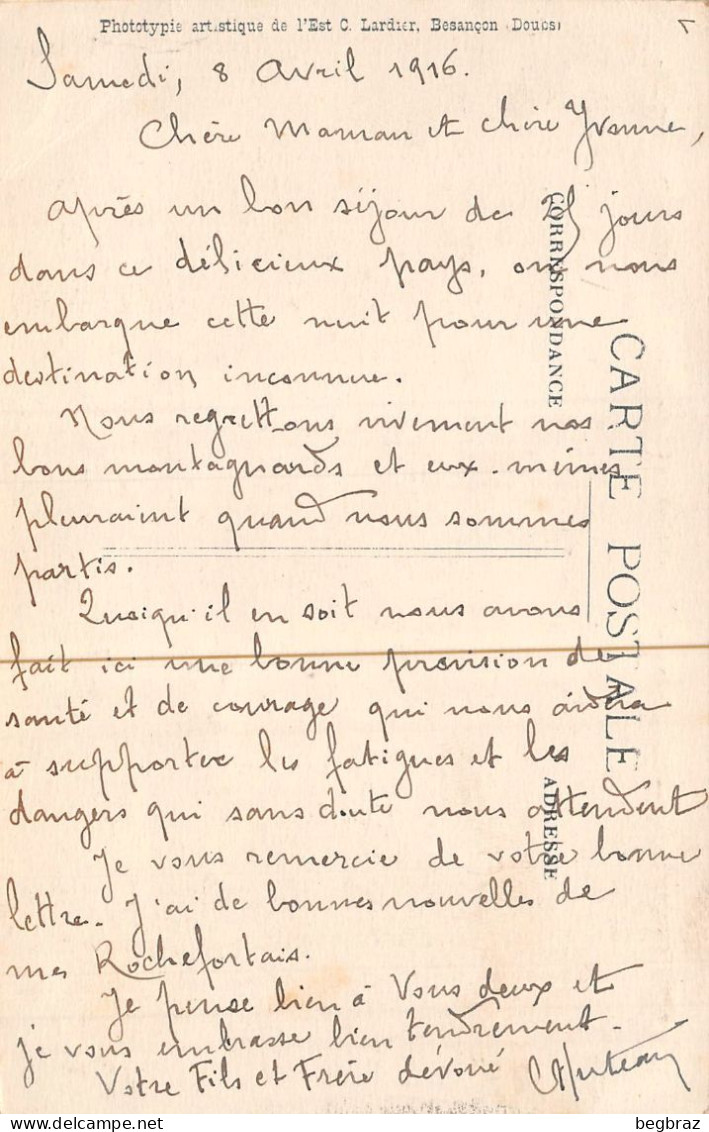 Phototypie artistique de l'Est C. Lardier, Besançon (Doubs)
Samedi, 8 Avril 1916.
Chère Maman et chère Yvonne,
Après un bon séjour de 25 jours
dans ce délicieux pays, on nous
embarque cette nuit pour une
destination inconnue.
Nous regrettons vivement nos
bons montagnards et eux-mêmes
pleuraient quand nous sommes
partis.
Quoiqu'il en soit nous avons
fait ici une bonne provision de
santé et de courage qui nous aidera
à supporter les fatigues et les
dangers qui sans doute nous attendent
Je vous remercie de votre bonne
lettre. J'ai de bonnes nouvelles de
mes Rochefortais.
Je pense bien à Vous deux et
je vous embrasse bien tendrement.
Votre Fils et Frère dévoué
CARTE POSTALE
CORRESPONDANCE
ADRESSE
begbraz